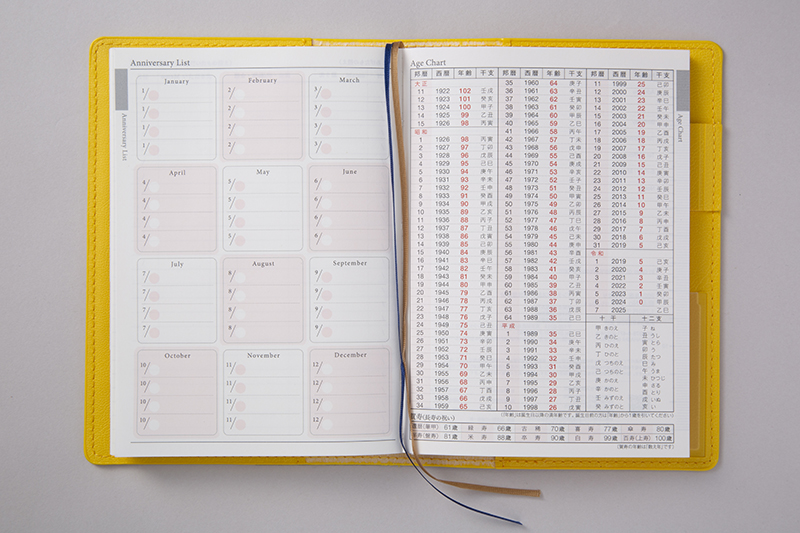 Anniversary List
Anniversary List
January
1/
1/
1/
1/
February
2/
2/
2/
2/
March
3/
3/
3/
3/
April
4/
4/
4/
4/
May
5/
5/
5/
5/
June
6/
6/
6/
6/
July
7/
7/
7/
7/
August
8/
8/
8/
8/
September
9/
9/
9/
9/
October
10/
10/
10/
10/
November
11/
11/
11/
11/
December
12/
12/
12/
12/
Age Chart
Age Chart
邦暦 西暦 年齢 干支
大正
11 1922 102 壬戌
12 1923 101 癸亥
13 1924 100 甲子
14 1925 99 乙丑
15 1926 98 丙寅
昭和
1 1926 98 丙寅
2 1927 97 丁卯
3 1928 96 戊辰
4 1929 95 己巳
5 1930 94 庚午
6 1931 93 辛未
7 1932 92 壬申
8 1933 91 癸酉
9 1934 90 甲戌
10 1935 89 乙亥
11 1936 88 丙子
12 1937 87 丁丑
13 1938 86 戊寅
14 1939 85 己卯
15 1940 84 庚辰
16 1941 83 辛巳
17 1942 82 壬午
18 1943 81 癸未
19 1944 80 甲申
20 1945 79 乙酉
21 1946 78 丙戌
22 1947 77 丁亥
23 1948 76 戊子
24 1949 75 己丑
25 1950 74 庚寅
26 1951 73 辛卯
27 1952 72 壬辰
28 1953 71 癸巳
29 1954 70 甲午
30 1955 69 乙未
31 1956 68 丙申
32 1957 67 丁酉
33 1958 66 戊戌
34 1959 65 己亥
邦暦 西暦 年齢 干支
35 1960 64 庚子
36 1961 63 辛丑
37 1962 62 壬寅
38 1963 61 癸卯
39 1964 60 甲辰
40 1965 59 乙巳
41 1966 58 丙午
42 1967 57 丁未
43 1968 56 戊申
44 1969 55 己酉
45 1970 54 庚戌
46 1971 53 辛亥
47 1972 52 壬子
48 1973 51 癸丑
49 1974 50 甲寅
50 1975 49 乙卯
51 1976 48 丙辰
52 1977 47 丁巳
53 1978 46 戊午
54 1979 45 己未
55 1980 44 庚申
56 1981 43 辛酉
57 1982 42 壬戌
58 1983 41 癸亥
59 1984 40 甲子
60 1985 39 乙丑
61 1986 38 丙寅
62 1987 37 丁卯
63 1988 36 戊辰
64 1989 35 己巳
平成
1 1989 35 己巳
2 1990 34 庚午
3 1991 33 辛未
4 1992 32 壬申
5 1993 31 癸酉
6 1994 30 甲戌
7 1995 29 乙亥
8 1996 28 丙子
9 1997 27 丁丑
10 1998 26 戊寅
邦暦 西暦 年齢 干支
11 1999 25 己卯
12 2000 24 庚辰
13 2001 23 辛巳
14 2002 22 壬午
15 2003 21 癸未
16 2004 20 甲申
17 2005 19 乙酉
18 2006 18 丙戌
19 2007 17 丁亥
20 2008 16 戊子
21 2009 15 己丑
22 2010 14 庚寅
23 2011 13 辛卯
24 2012 12 壬辰
25 2013 11 癸巳
26 2014 10 甲午
27 2015 9 乙未
28 2016 8 丙申
29 2017 7 丁酉
30 2018 6 戊戌
31 2019 5 己亥
令和
1 2019 5 己亥
2 2020 4 庚子
3 2021 3 辛丑
4 2022 2 壬寅
5 2023 1 癸卯
6 2024 0 甲辰
7 2025 乙巳
十干 十二支
甲 きのえ 子 ね
乙 きのと 丑 うし
丙 ひのえ 寅 とら
丁 ひのと 卯 う
戊 つちのえ 辰 たつ
己 つちのと 巳 み
庚 かのえ 午 うま
辛 かのと 未 ひつじ
壬 みずのえ 申 さる
癸 みずのと 酉 とり
戌 いぬ
亥 い
「年齢」は誕生日以降の満年齢です。誕生日前の方は「年齢」から1歳を引いてください
賀寿(長寿の祝い)
還暦(華甲) 61歳 緑寿 66歳 古稀 70歳 喜寿 77歳 傘寿 80歳
半寿(盤寿) 81歳 米寿 88歳 卒寿 90歳 白寿 99歳 百寿(上寿) 100歳
(賀寿の年齢は「数え年」です)